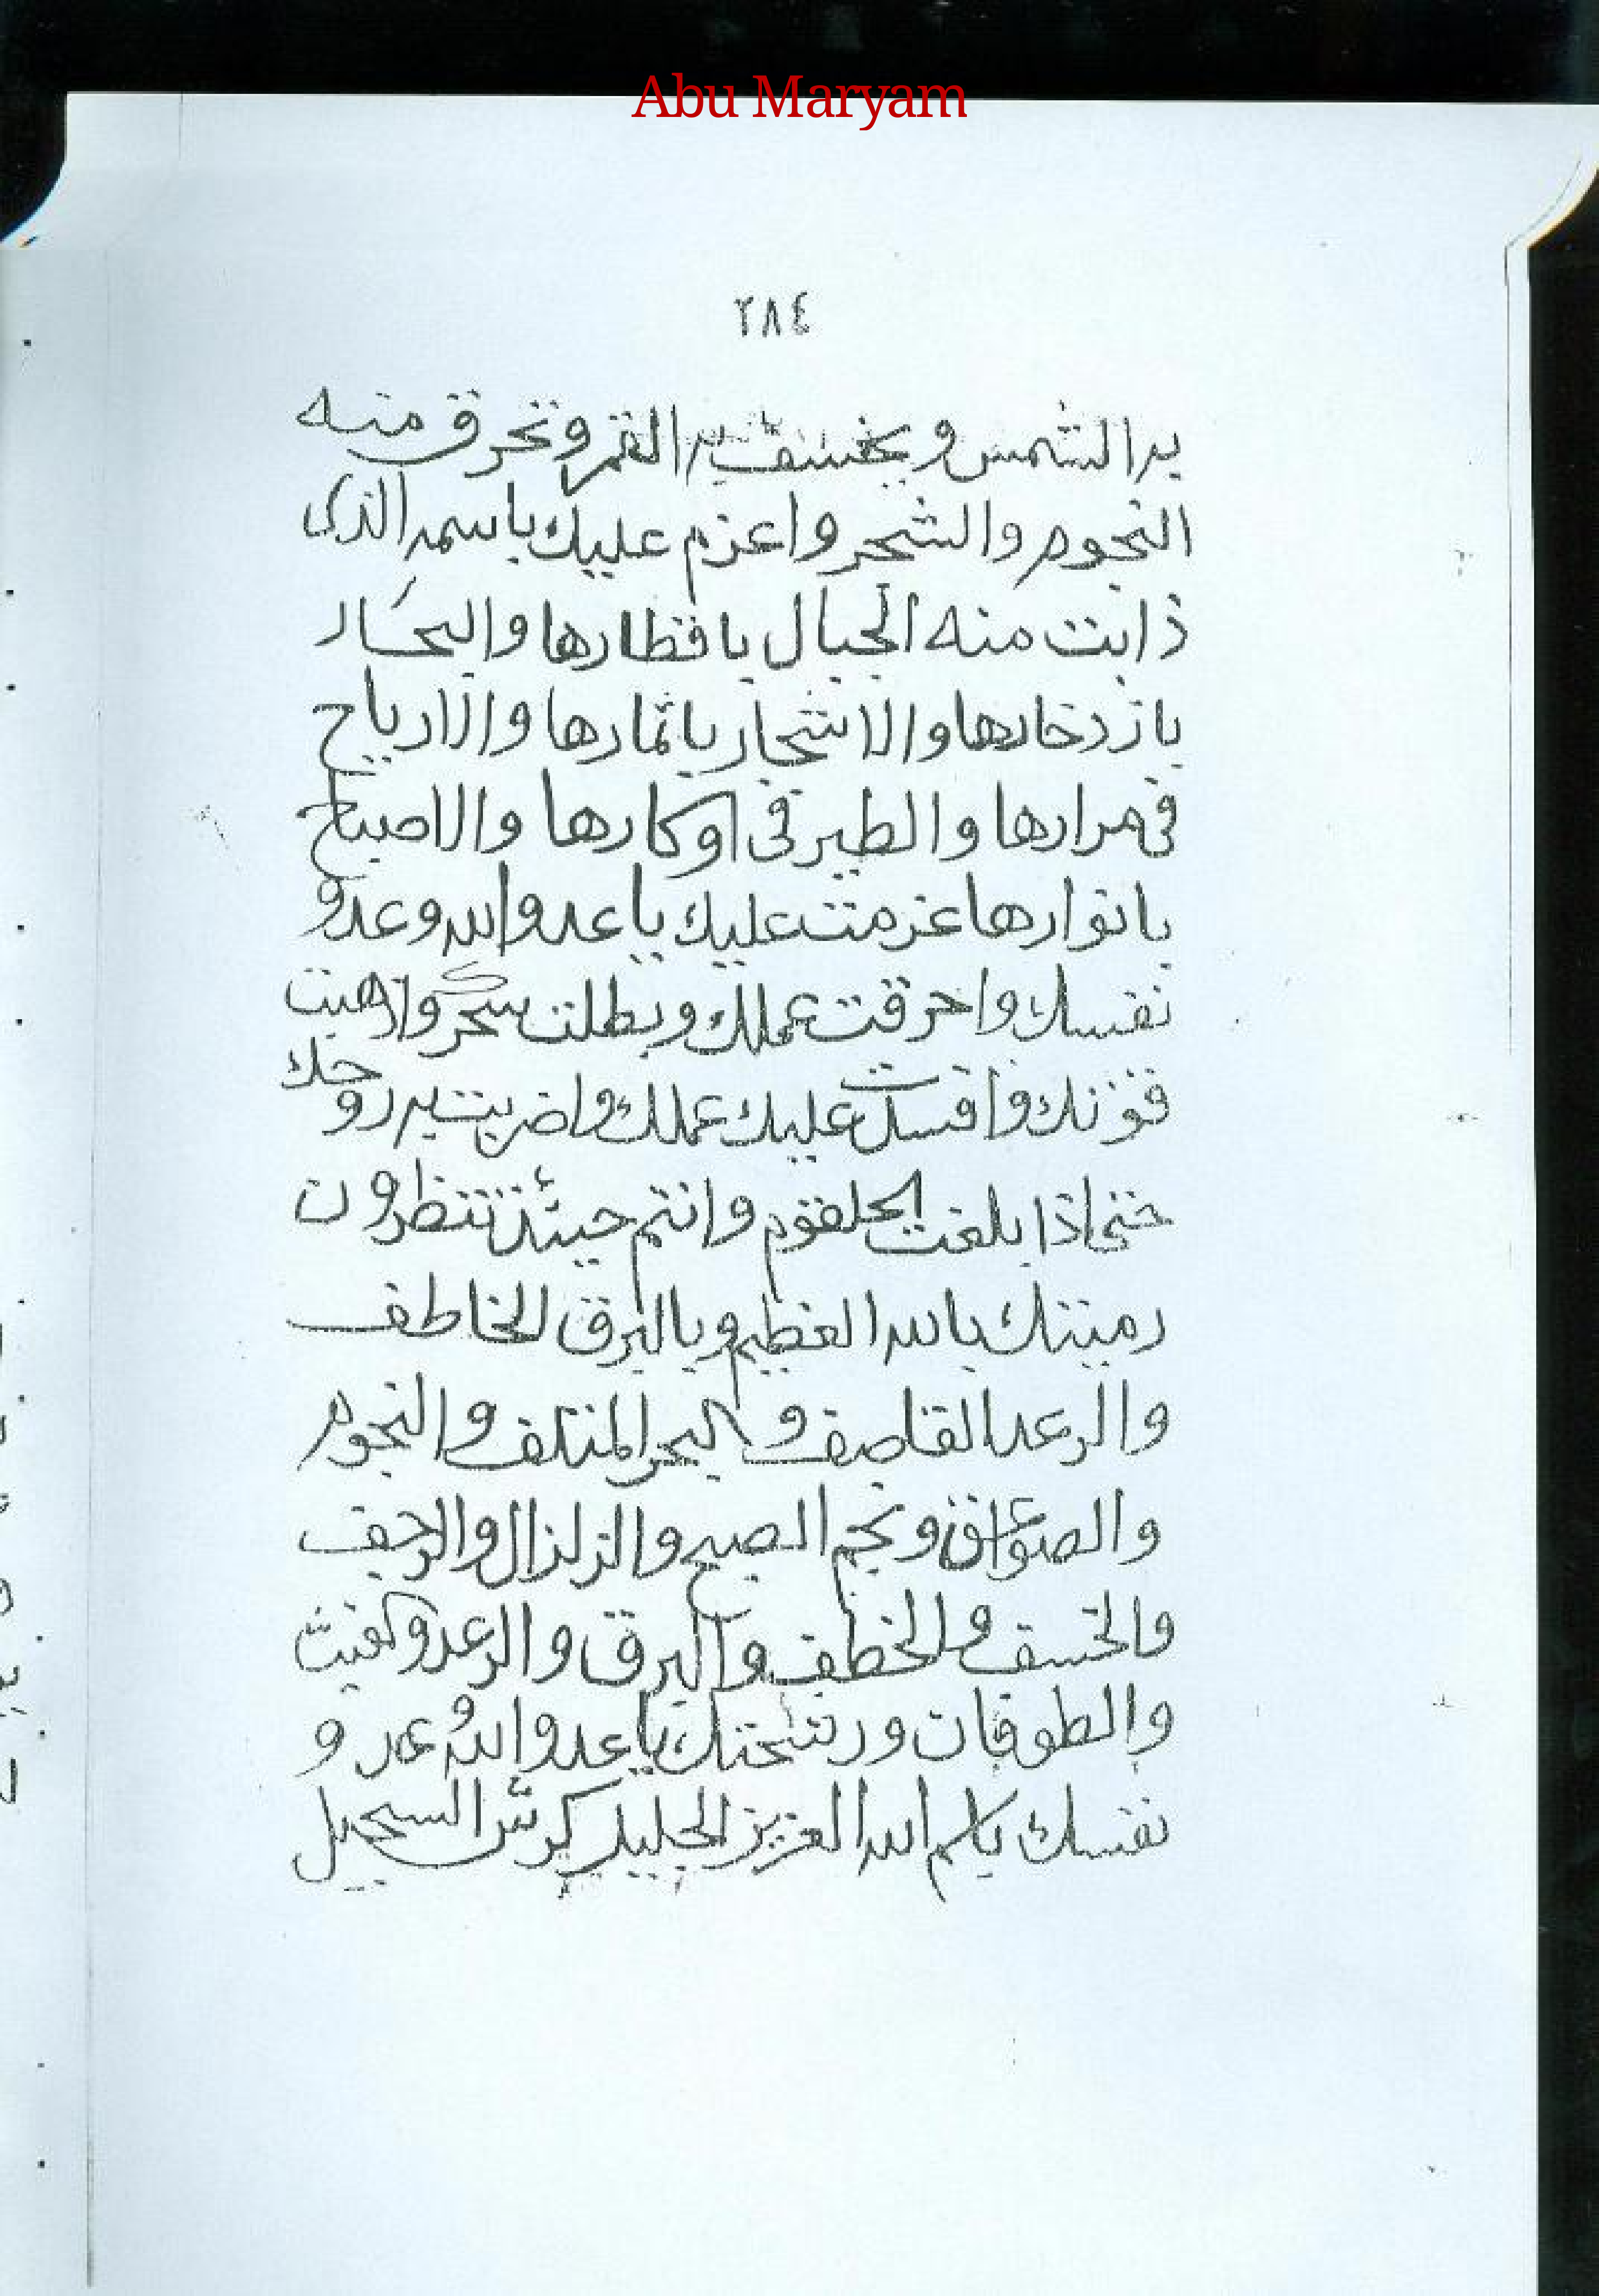 Abu Maryam
٢٨٤
به الشمس ويخسف به القمر وتحرق منه
النجوم والشجر واعزم عليك باسمه الذى
ذابت منه الجبال باقطارها والبحار
بازدخارها والاشجار باثمارها والارياح
فى مرارها والطير فى اوكارها والاصباح
بانوارها عزمت عليك يا عدو الله وعدو
نفسك واحرقت عملك وبطلت سحرك واذهبت
قوتك وافسدت عليك عملك واضربت به روحك
حتى اذا بلغت الحلقوم وانتم حينئذ تنظرون
رميتك بالله العظيم وبالبرق الخاطف
والرعد القاصف والبحر المتلف والنجوم
والصواعق ونجم الصبح والزلزال والرجف
والخسف والخطف والبرق والرعد والغيث
والطوفان ورشحتك يا عدو الله عدو
نفسك باسم الله العزيز الجليل كرش السجيل